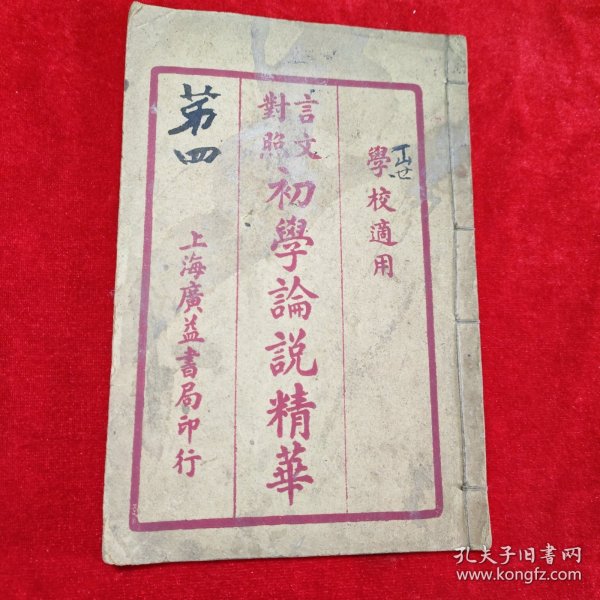 學校適用
言文
對照
初學論說精華
第四
上海廣益書局印行
孔夫子旧书网
www.kongfz.com